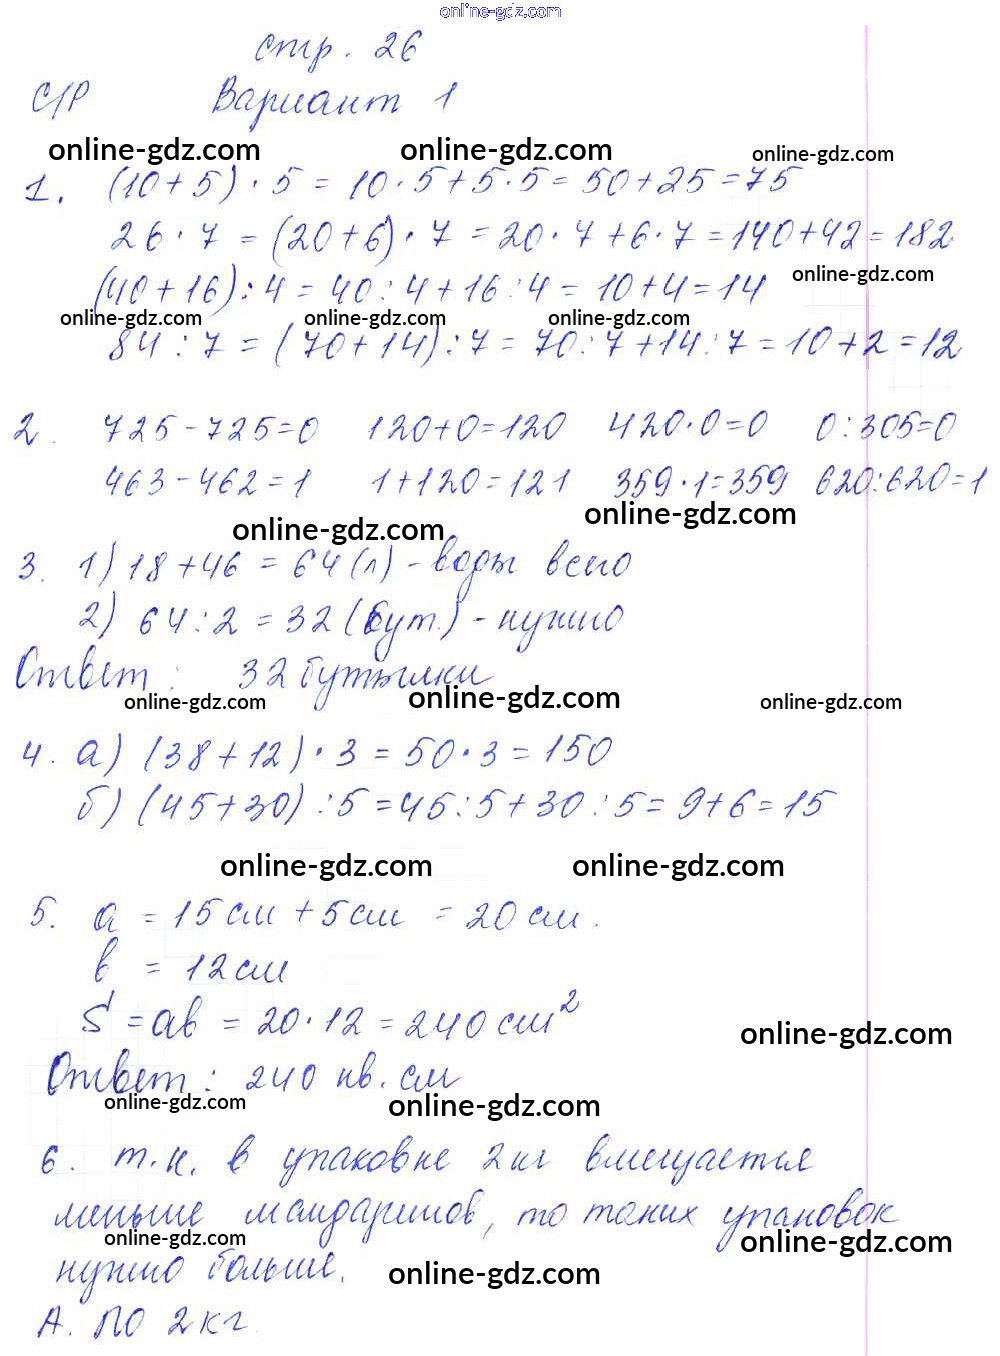 online-gdz.com
стр. 26
С/Р Вариант 1
online-gdz.com online-gdz.com online-gdz.com
1. (10+5)·5=10·5+5·5=50+25=75
26·7=(20+6)·7=20·7+6·7=140+42=182
online-gdz.com
(40+16):4=40:4+16:4=10+4=14
online-gdz.com online-gdz.com online-gdz.com
84:7=(70+14):7=70:7+14:7=10+2=12
2. 725-725=0 120+0=120 420·0=0 0:305=0
463-462=1 1+120=121 359·1=359 620:620=1
online-gdz.com online-gdz.com
3. 1) 18+46=64(л)-воды всего
2) 64:2=32(бут.)-нужно
Ответ: 32 бутылки
online-gdz.com online-gdz.com online-gdz.com
4. а) (38+12)·3=50·3=150
б) (45+30):5=45:5+30:5=9+6=15
online-gdz.com online-gdz.com
5. a=15см+5см=20см.
b=12см
S=ab=20·12=240см²
online-gdz.com
Ответ: 240 кв.см
online-gdz.com online-gdz.com
6. т.к. в упаковке 2кг вмещается
меньше мандаринов, то таких упаковок
online-gdz.com online-gdz.com
нужно больше.
online-gdz.com
А. по 2кг.